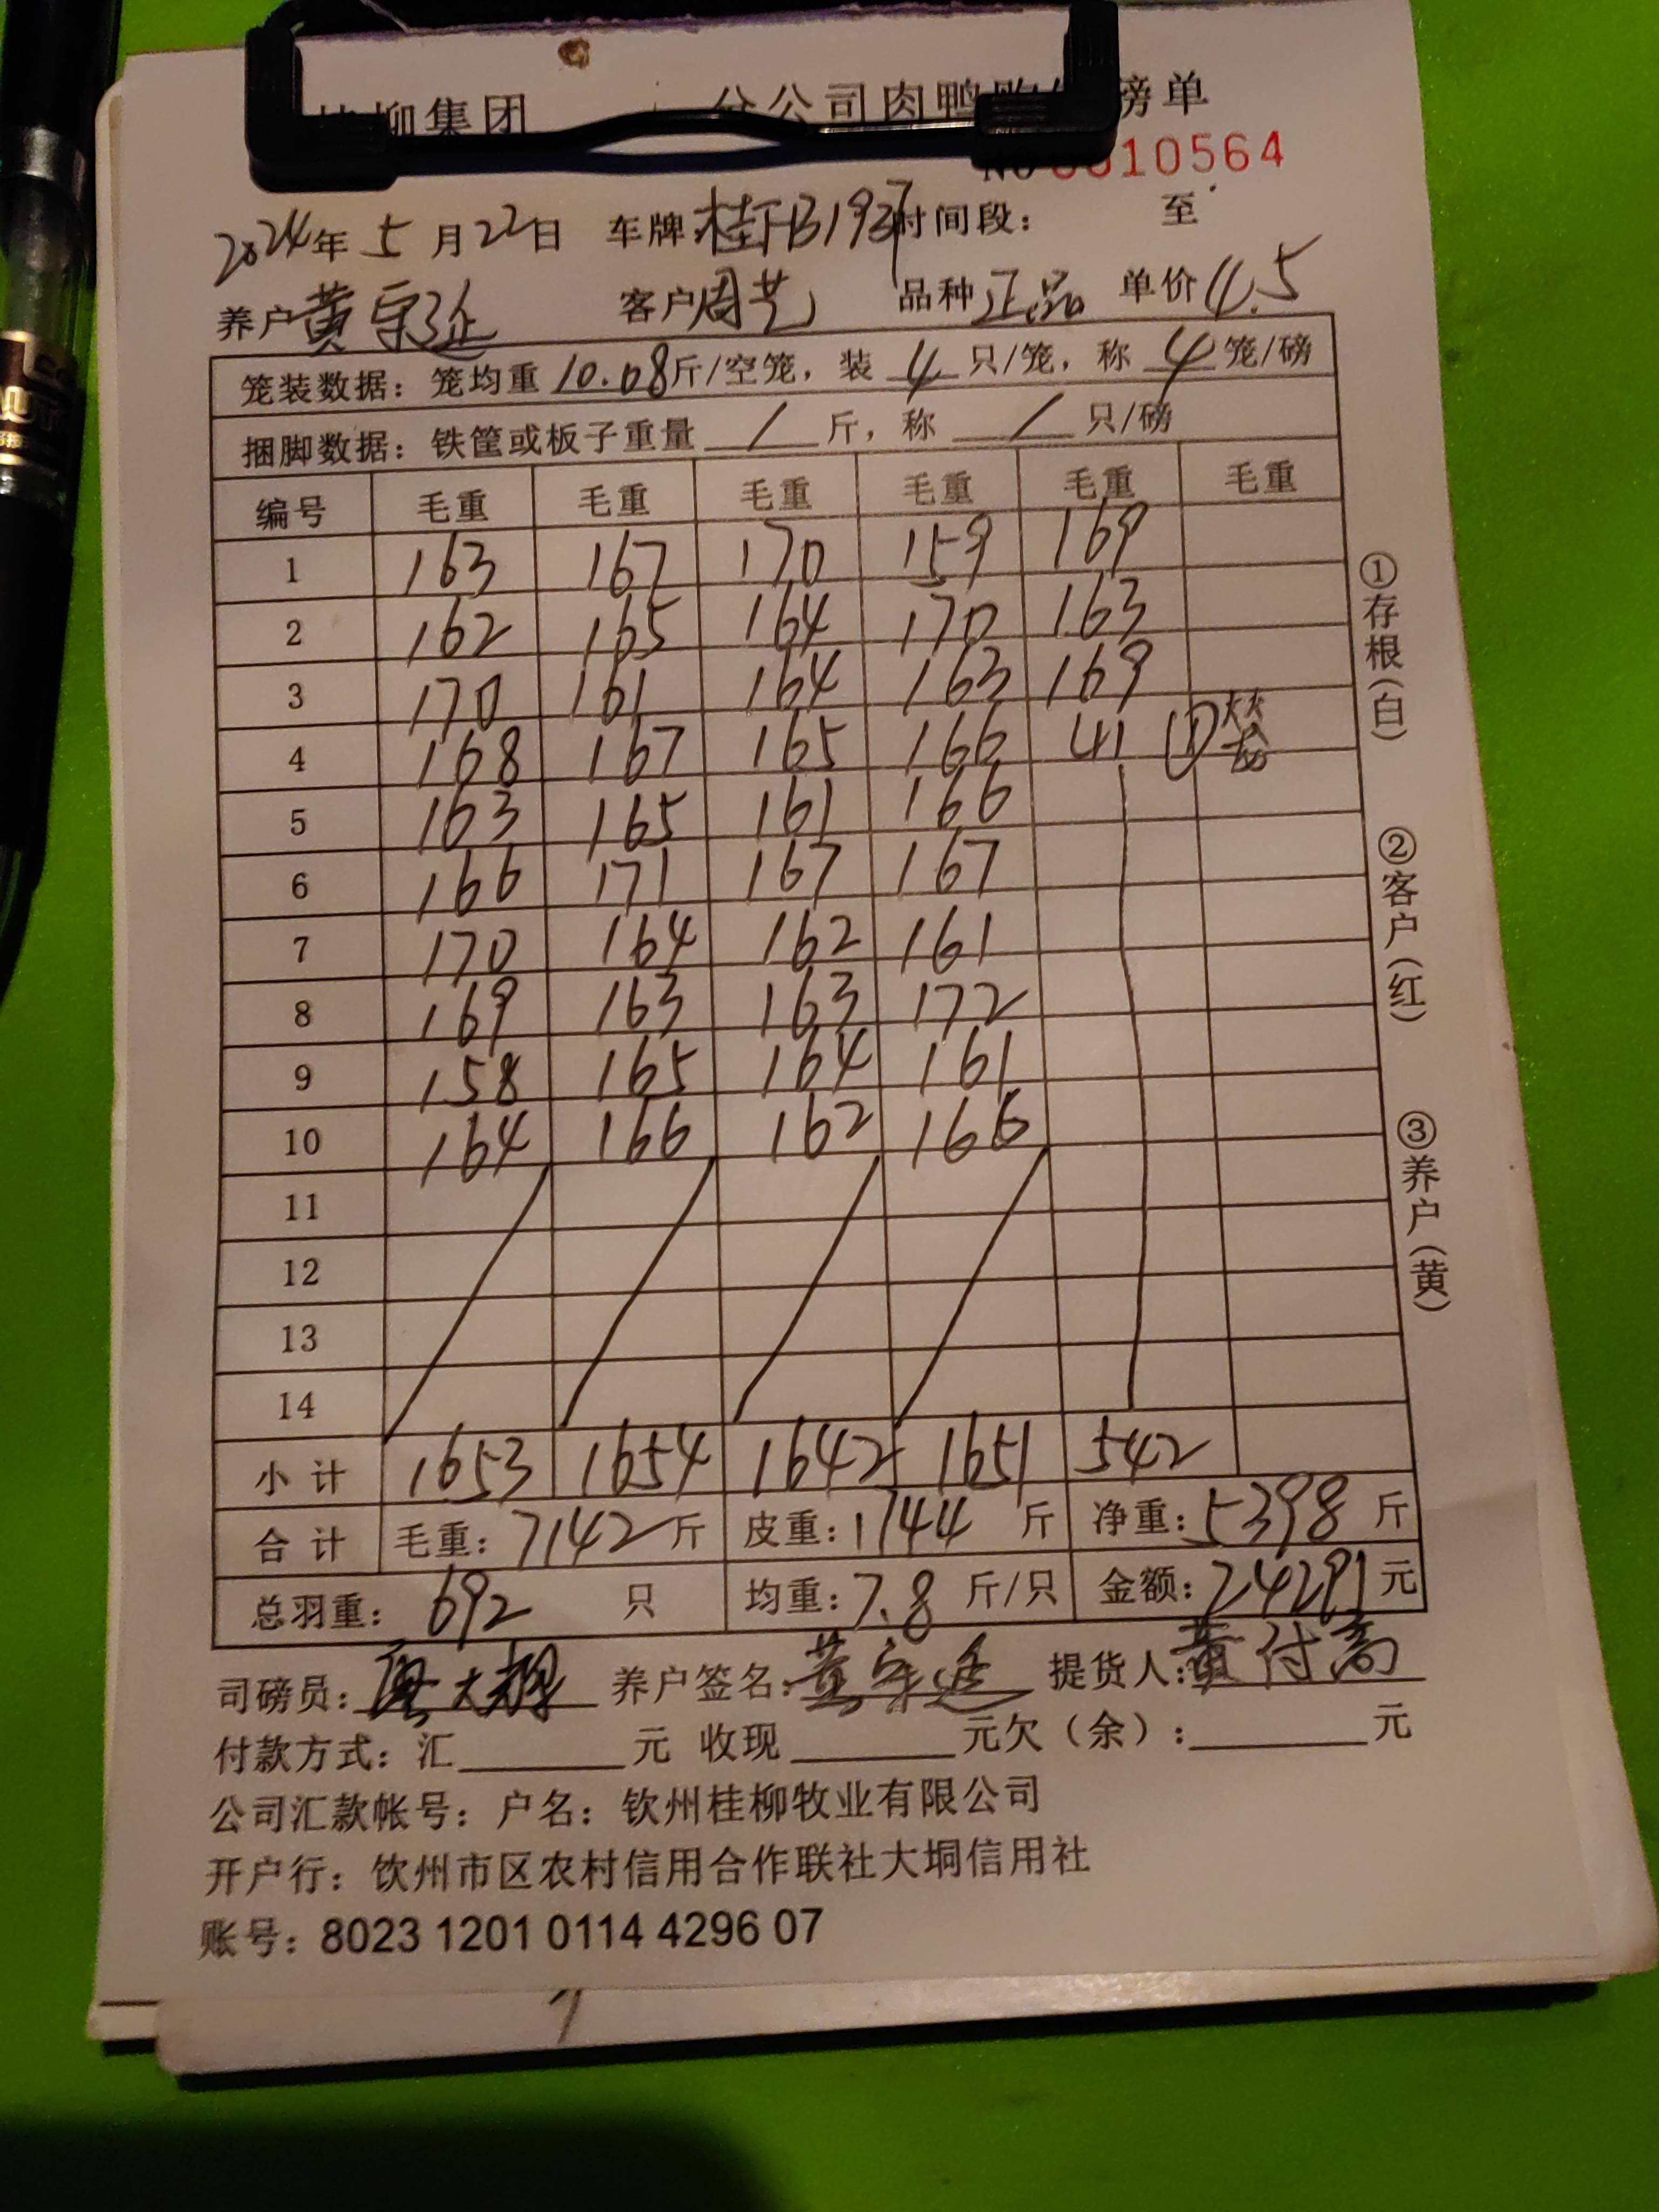 柳集团 分公司肉鸭 榜单
10564
2024年 5 月 22日 车牌:桂 B1937 时间段: 至
养户 黄宗延 客户 周艺 品种 正品 单价 4.5
笼装数据: 笼均重 10.08 斤/空笼, 装 4 只/笼, 称 4 笼/磅
捆脚数据: 铁筐或板子重量 / 斤, 称 / 只/磅
编号 毛重 毛重 毛重 毛重 毛重 毛重
1 163 167 170 159 169
2 162 165 164 170 163
3 170 161 164 163 169
4 168 167 165 166 41 ①
5 163 165 161 166
6 166 171 167 167
7 170 164 162 161
8 169 163 163 172
9 158 165 164 161
10 164 166 162 166
11
12
13
14
小 计 1653 1654 1642 1651 542
合 计 毛重: 7142 斤 皮重: 1744 斤 净重: 5398 斤
总羽重: 692 只 均重: 7.8 斤/只 金额: 24291 元
司磅员: 养户签名: 黄宗延 提货人: 黄付高
付款方式: 汇 元 收现 元欠(余): 元
公司汇款帐号: 户名: 钦州桂柳牧业有限公司
开户行: 饮州市区农村信用合作联社大垌信用社
账号: 8023 1201 0114 4296 07
①存根(白)
②客户(红)
③养户(黄)